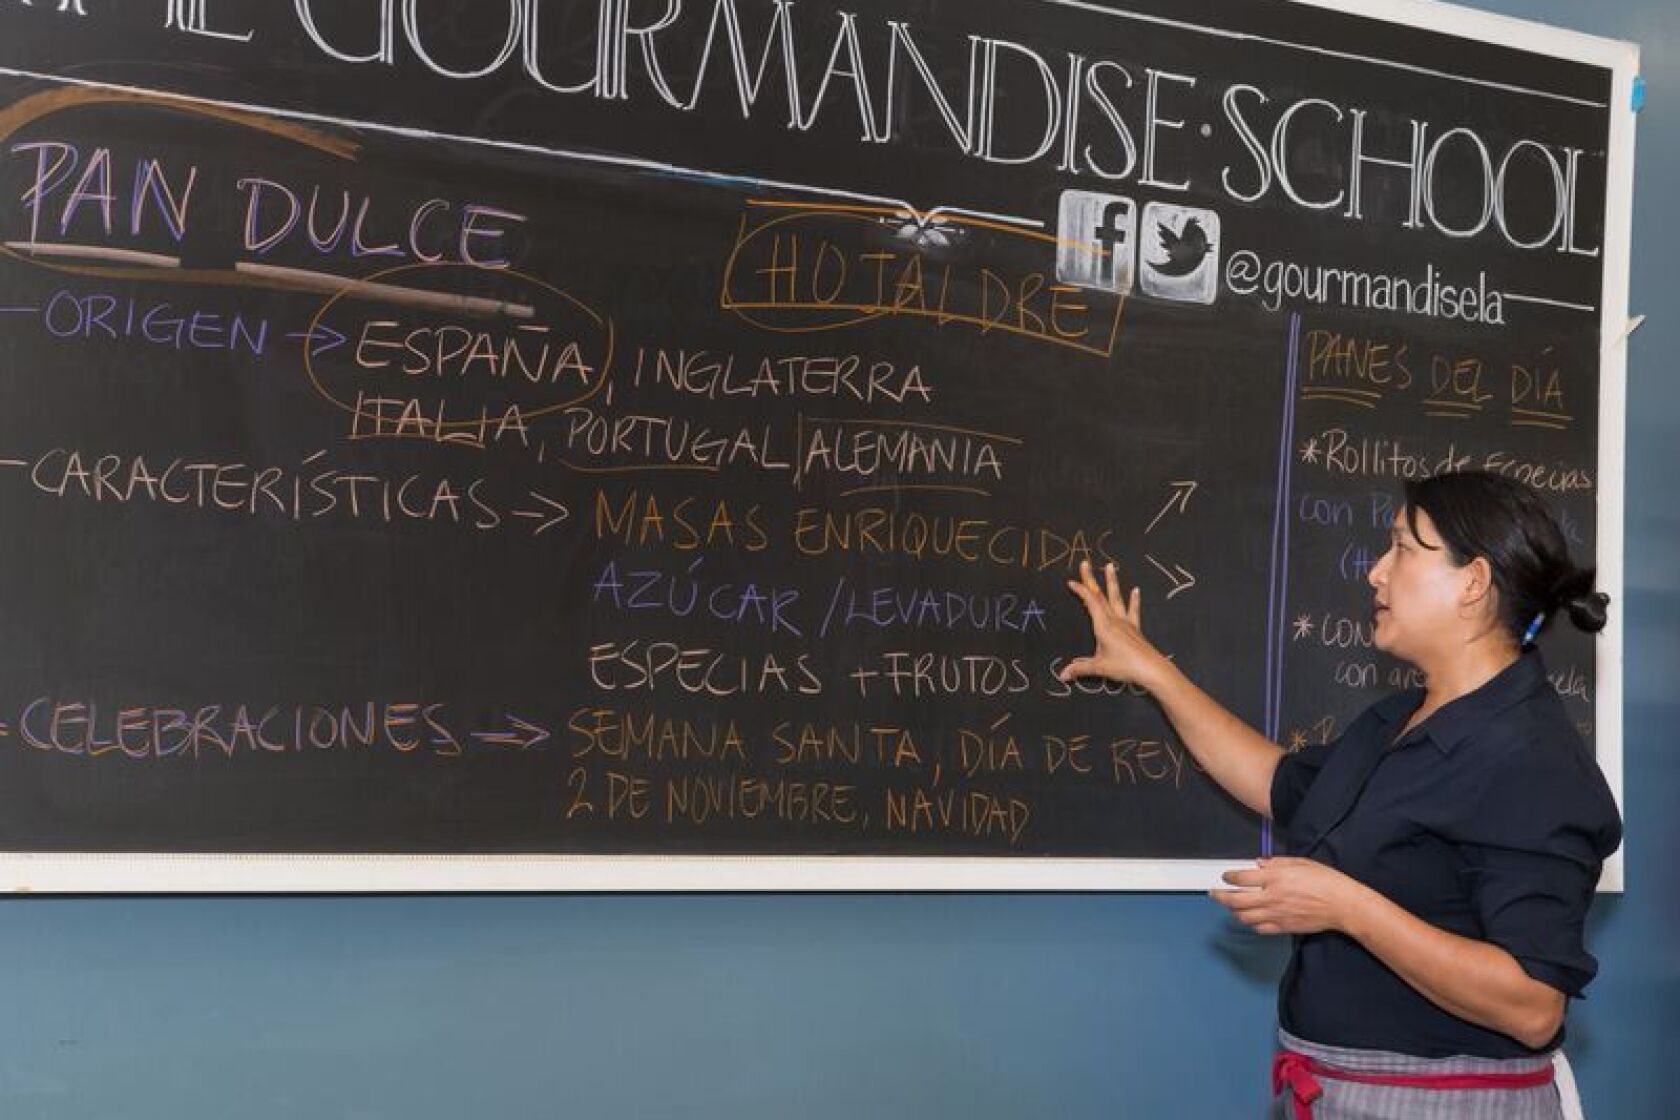 GOURMANDISE·SCHOOL
@gourmandisela
PAN DULCE
HOJALDRE
-ORIGEN → ESPAÑA, INGLATERRA
ITALIA, PORTUGAL|ALEMANIA
-CARACTERÍSTICAS → MASAS ENRIQUECIDAS
AZÚCAR /LEVADURA
ESPECIAS +FRUTOS
-CELEBRACIONES → SEMANA SANTA, DÍA DE REY
2 DE NOVIEMBRE, NAVIDAD
PANES DEL DÍA
*Rollitos de Especias
con
(H
*CON
con
*